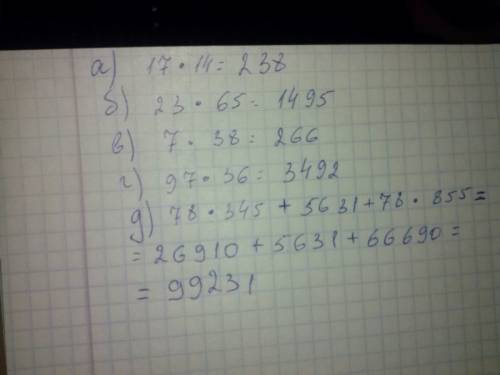 а) 17 · 14 = 238
б) 23 · 65 = 1495
в) 7 · 38 = 266
г) 97 · 36 = 3492
д) 78 · 345 + 5631 + 78 · 855 =
= 26910 + 5631 + 66690 =
= 99231